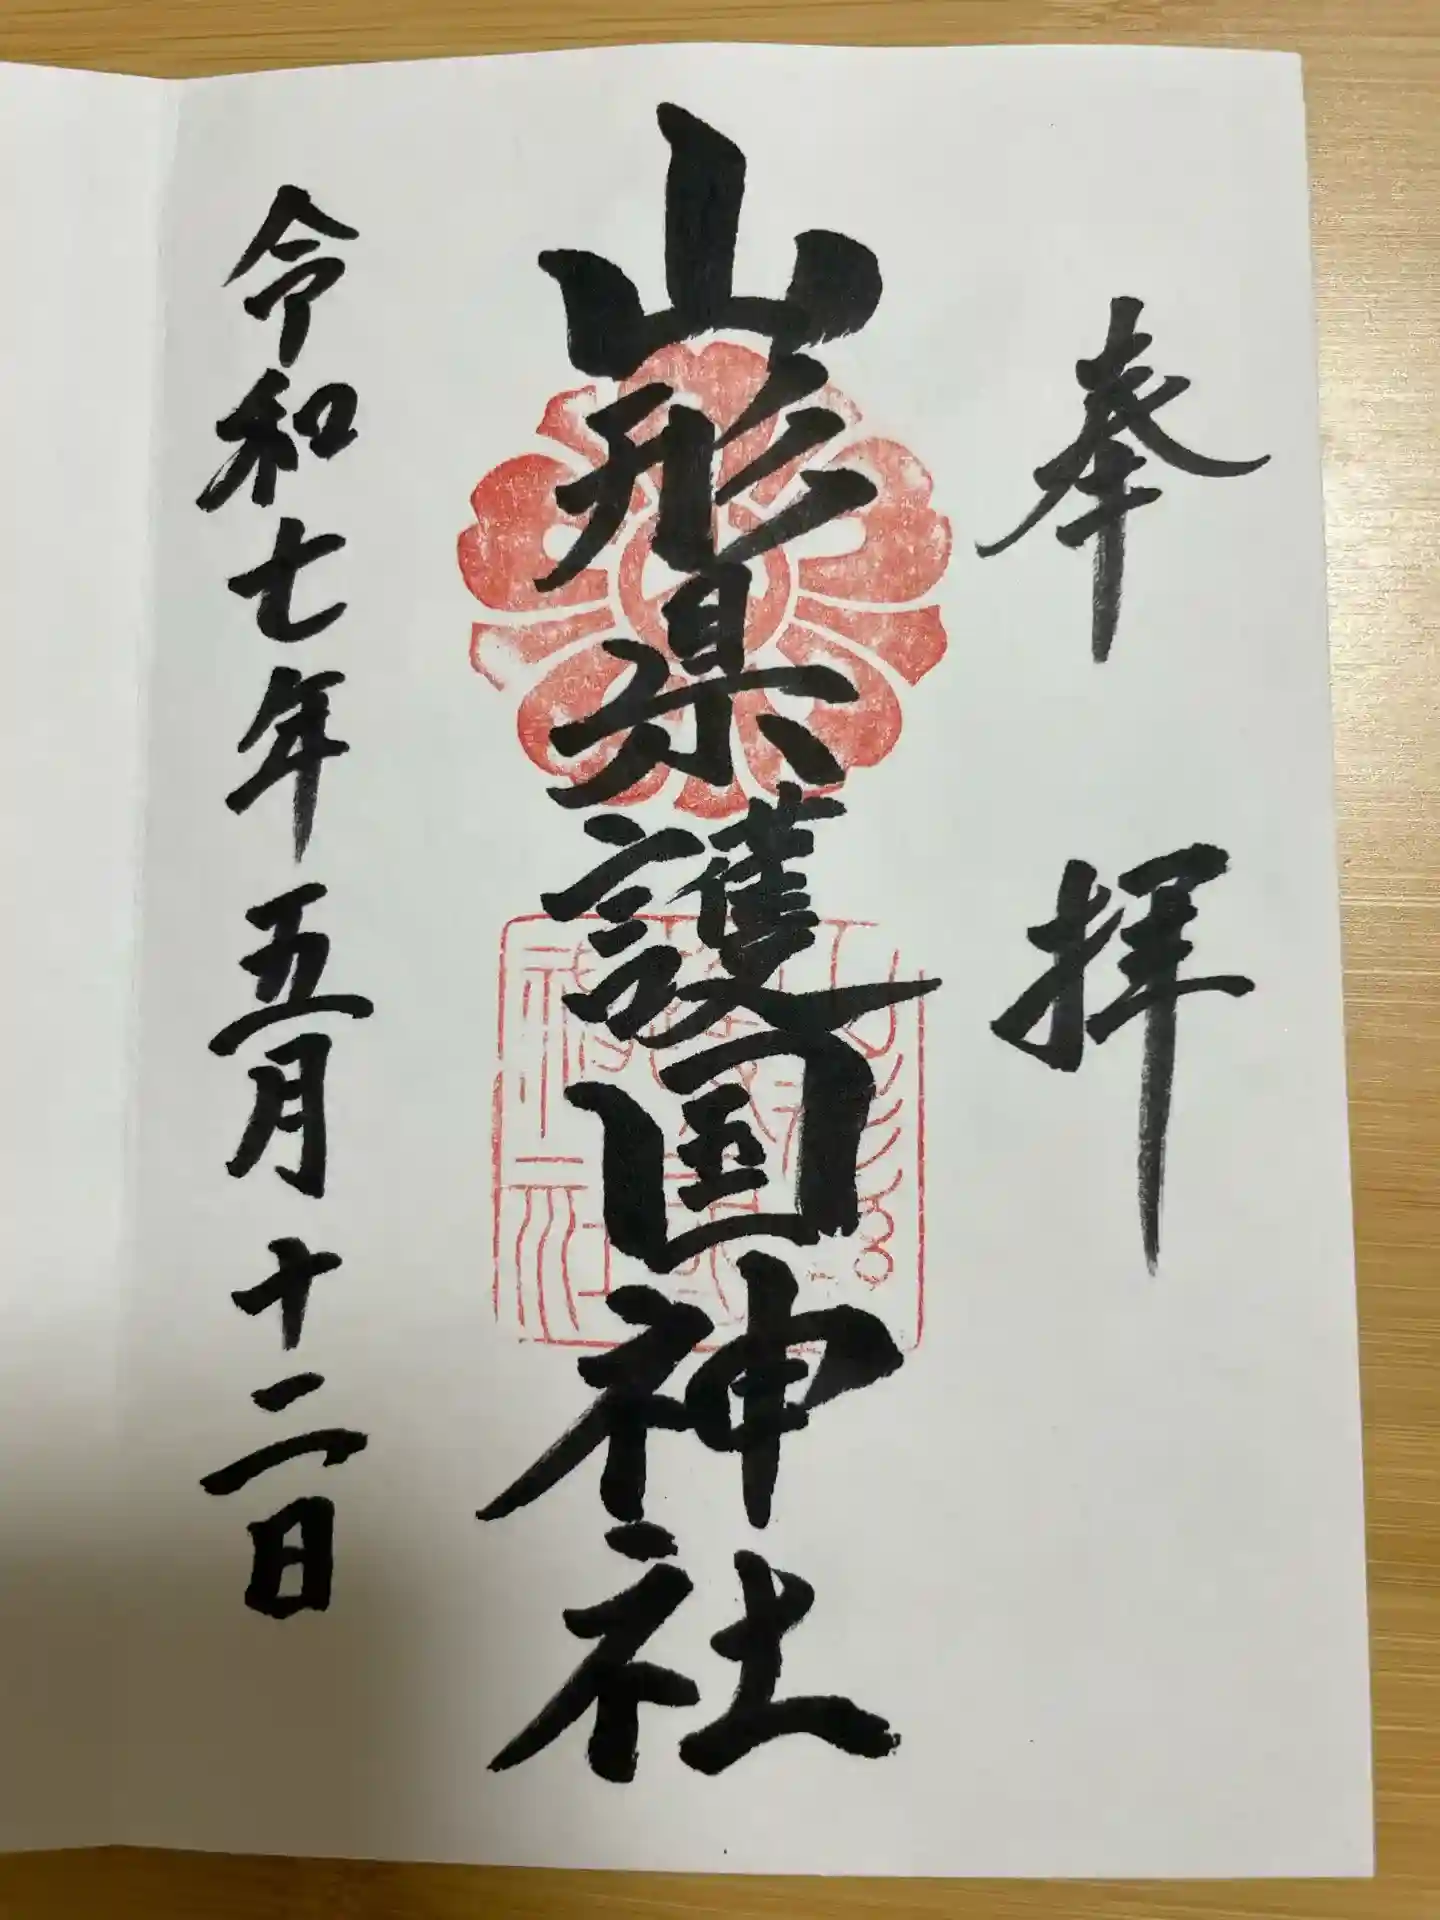 奉拝
山形県護国神社
令和七年五月十二日